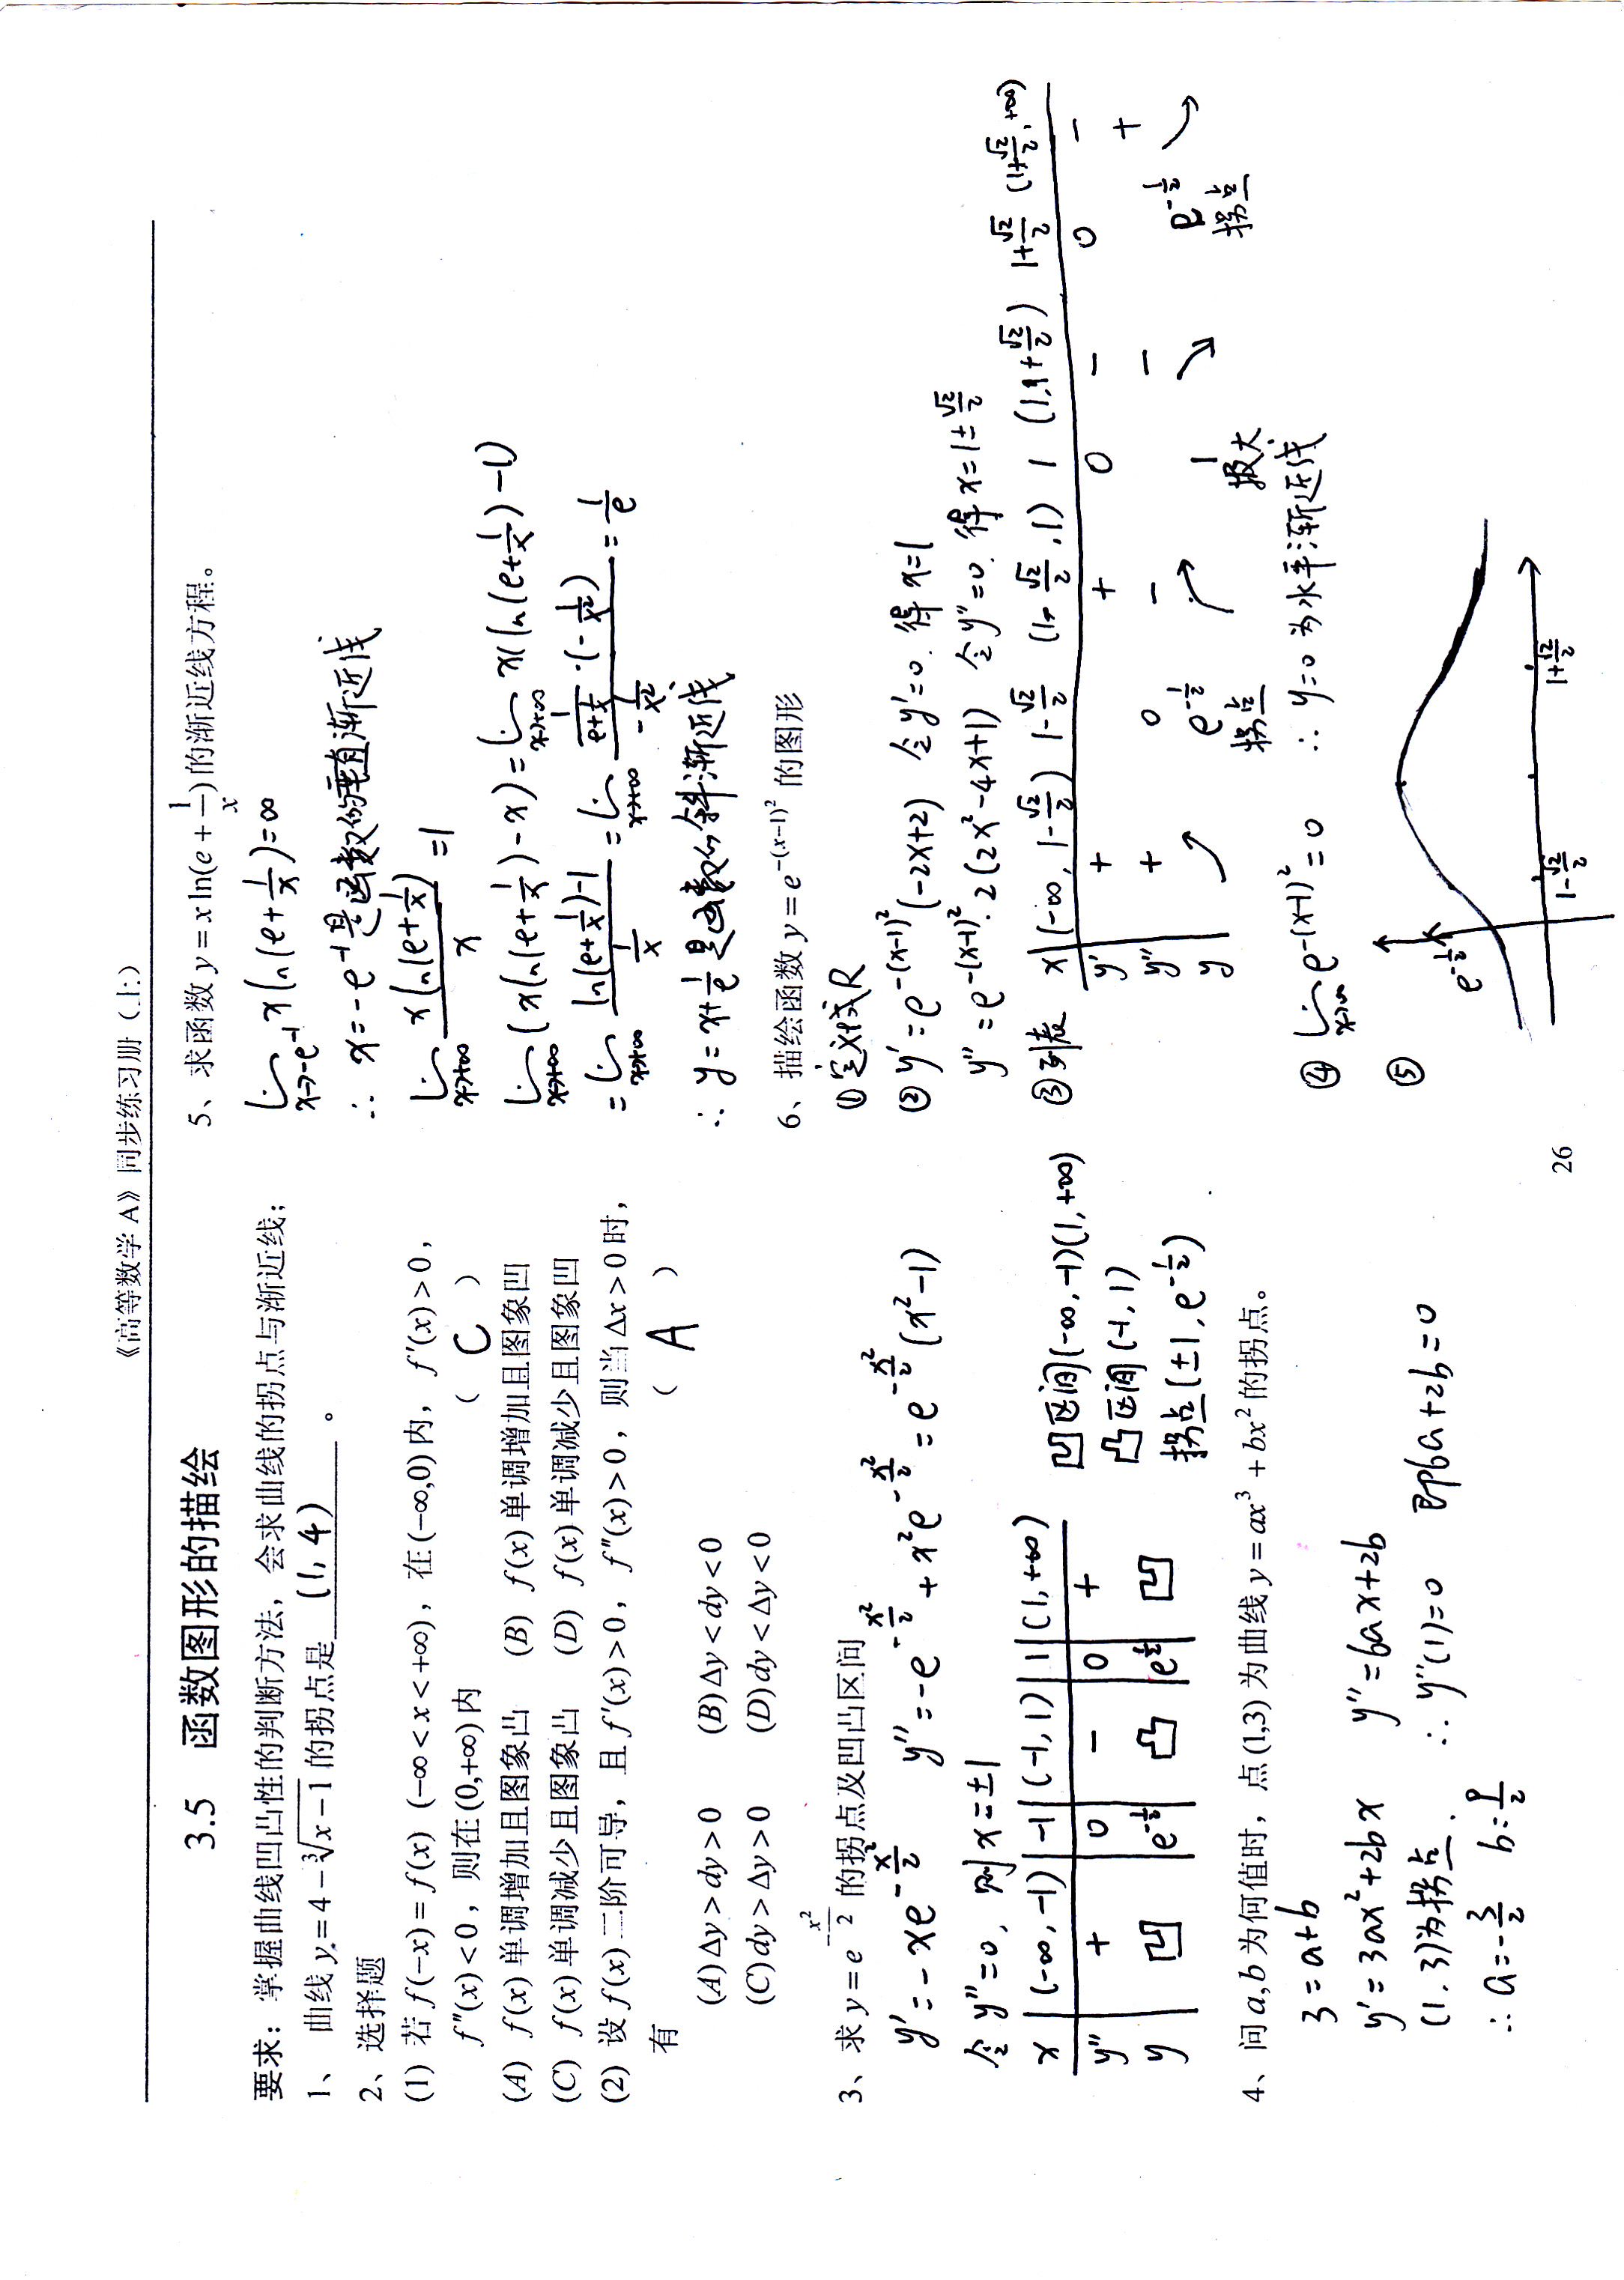 《高等数学 A》同步练习册（上）
3.5 函数图形的描绘
要求：掌握曲线凹凸性的判断方法，会求曲线的拐点与渐近线；
1、 曲线 y = 4 - ∛(x-1) 的拐点是 (1, 4) 。
2、选择题
(1) 若 f(-x) = f(x) (-∞ < x < +∞)，在 (-∞,0) 内，f'(x) > 0，
f''(x) < 0，则在 (0,+∞) 内 （ C ）
(A) f(x) 单调增加且图象凸 (B) f(x) 单调增加且图象凹
(C) f(x) 单调减少且图象凸 (D) f(x) 单调减少且图象凹
(2) 设 f(x) 二阶可导，且 f'(x) > 0，f''(x) > 0，则当 Δx > 0 时，
有 （ A ）
(A) Δy > dy > 0 (B) Δy < dy < 0
(C) dy > Δy > 0 (D) dy < Δy < 0
3、求 y = e^(-x²/2) 的拐点及凹凸区间
y' = -xe^(-x²/2) y'' = -e^(-x²/2) + x²e^(-x²/2) = e^(-x²/2) (x²-1)
令 y''=0, 则 x=±1
x | (-∞, -1) | -1 | (-1, 1) | 1 | (1, +∞)
y'' + 0 - 0 +
y 凹 e^(-1/2) 凸 凹
凹区间(-∞, -1)(1, +∞)
凸区间 (-1, 1)
拐点(±1, e^(-1/2))
4、问 a,b 为何值时，点 (1,3) 为曲线 y = ax³ + bx² 的拐点。
3 = a+b
y' = 3ax²+2bx y'' = 6ax+2b
(1, 3)为拐点. ∴ y''(1)=0 即6a+2b=0
∴ a=-3/2 b=9/2
5、求函数 y = x ln(e + 1/x) 的渐近线方程。
lim x→-e⁻¹ x ln(e+1/x) = ∞
∴ x = -e⁻¹ 是函数的垂直渐近线
lim x→+∞ x ln(e+1/x) / x = 1
lim x→+∞ (x ln(e+1/x) - x) = lim x→+∞ x(ln(e+1/x) -1)
= lim x→+∞ (ln(e+1/x)-1) / (1/x) = lim x→+∞ (1/(e+1/x) · (-1/x²)) / (-1/x²) = 1/e
∴ y = x+1/e 是函数的斜渐近线
6、描绘函数 y = e^(-(x-1)²) 的图形
① 定义域R
② y' = e^(-(x-1)²) (-2x+2) 令 y'=0. 得 x=1
y'' = e^(-(x-1)²) · 2(2x²-4x+1) 令 y''=0. 得 x=1±√2/2
③ 列表 x | (-∞, 1-√2/2) 1-√2/2 (1-√2/2, 1) 1 (1, 1+√2/2) 1+√2/2 (1+√2/2, +∞)
y' + + 0 - 0 -
y'' + 0 - - +
y e^(-1/2) 1 e^(-1/2)
拐点 极大 拐点
④ lim x→∞ e^(-(x-1)²) = 0 ∴ y=0 为水平渐近线
⑤
e^(-1/2)
1-√2/2 1+√2/2
26